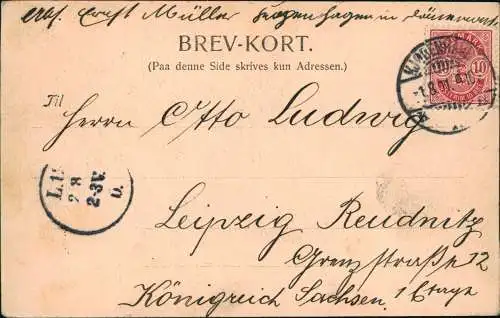 abs. Ernst Müller Kopenhagen in Dänemark
BREV-KORT.
(Paa denne Side skrives kun Adressen.)
Til
Herrn Otto Ludwig
Leipzig Reudnitz
Grenzstraße 12
Königreich Sachsen. 1 Etage
10
2 8
2-3V.